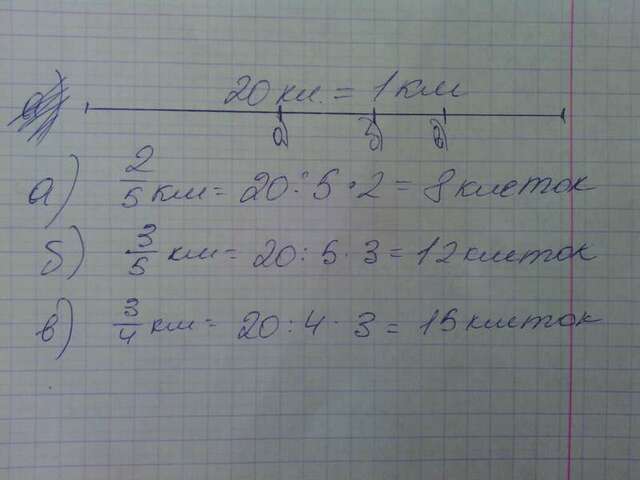 20 кл. = 1 км
а) б) в)
а) 2/5 км = 20 : 5 · 2 = 8 клеток
б) 3/5 км = 20 : 5 · 3 = 12 клеток
в) 3/4 км = 20 : 4 · 3 = 15 клеток